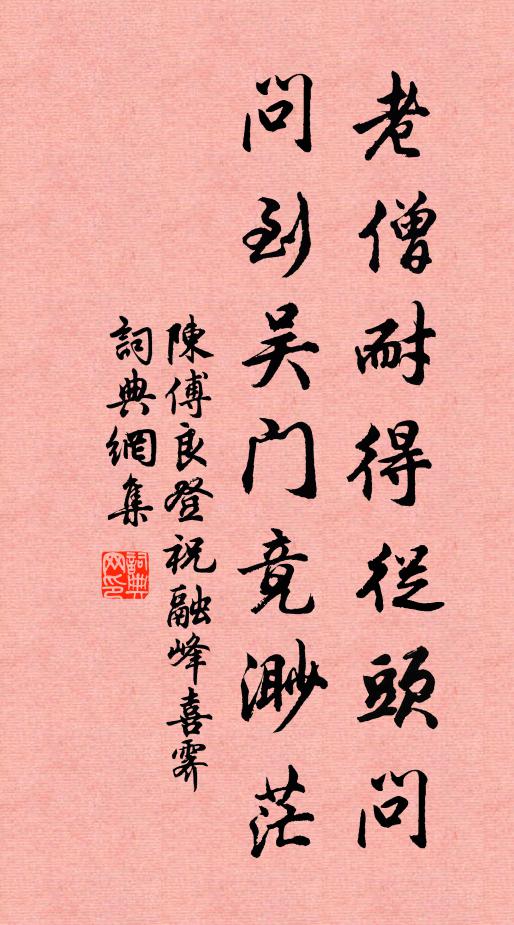 老僧耐得從頭問
問到吴門竟渺茫
陳傅良登祝融峰喜霽
詞典網集
詞典網印